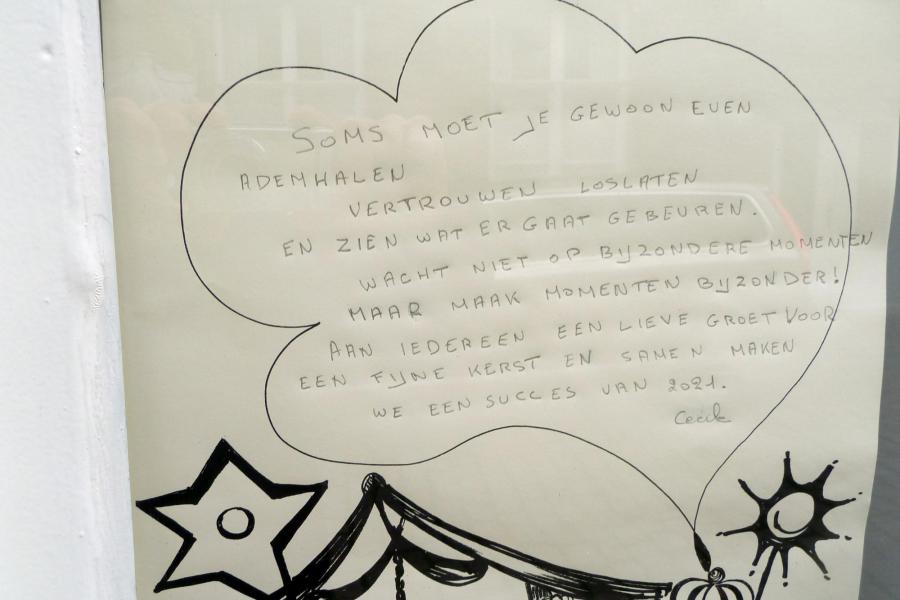 SOMS MOET JE GEWOON EVEN
ADEMHALEN
VERTROUWEN LOSLATEN
EN ZIEN WAT ER GAAT GEBEUREN.
WACHT NIET OP BIJZONDERE MOMENTEN
MAAR MAAK MOMENTEN BIJZONDER!
AAN IEDEREEN EEN LIEVE GROET VOOR
EEN FIJNE KERST EN SAMEN MAKEN
WE EEN SUCCES VAN 2021.
Cecile